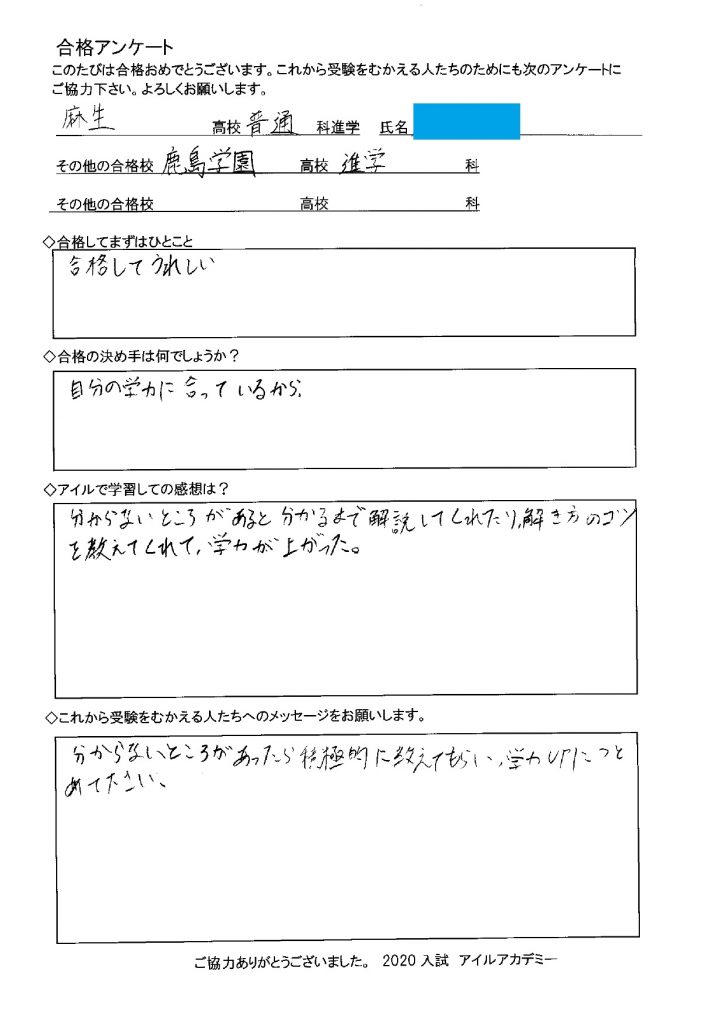 合格アンケート
このたびは合格おめでとうございます。これから受験をむかえる人たちのためにも次のアンケートに
ご協力下さい。よろしくお願いします。
麻生 高校 普通 科進学 氏名
その他の合格校 鹿島学園 高校 進学 科
その他の合格校 高校 科
◇合格してまずはひとこと
合格してうれしい
◇合格の決め手は何でしょうか？
自分の学力に合っているから、
◇アイルで学習しての感想は？
分からないところがあると分かるまで解説してくれたり、解き方のコツ
を教えてくれて、学力が上がった。
◇これから受験をむかえる人たちへのメッセージをお願いします。
分からないところがあったら積極的に教えてもらい、学力UPにつと
めて下さい、
ご協力ありがとうございました。 2020入試 アイルアカデミー